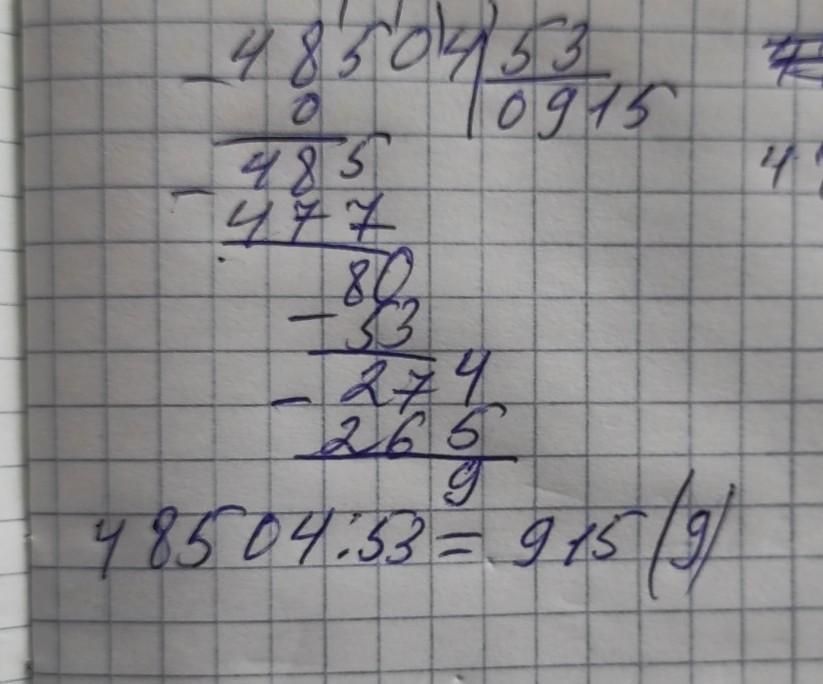 48504 53
0 0915
485
477
80
53
274
265
9
48504:53=915(9)